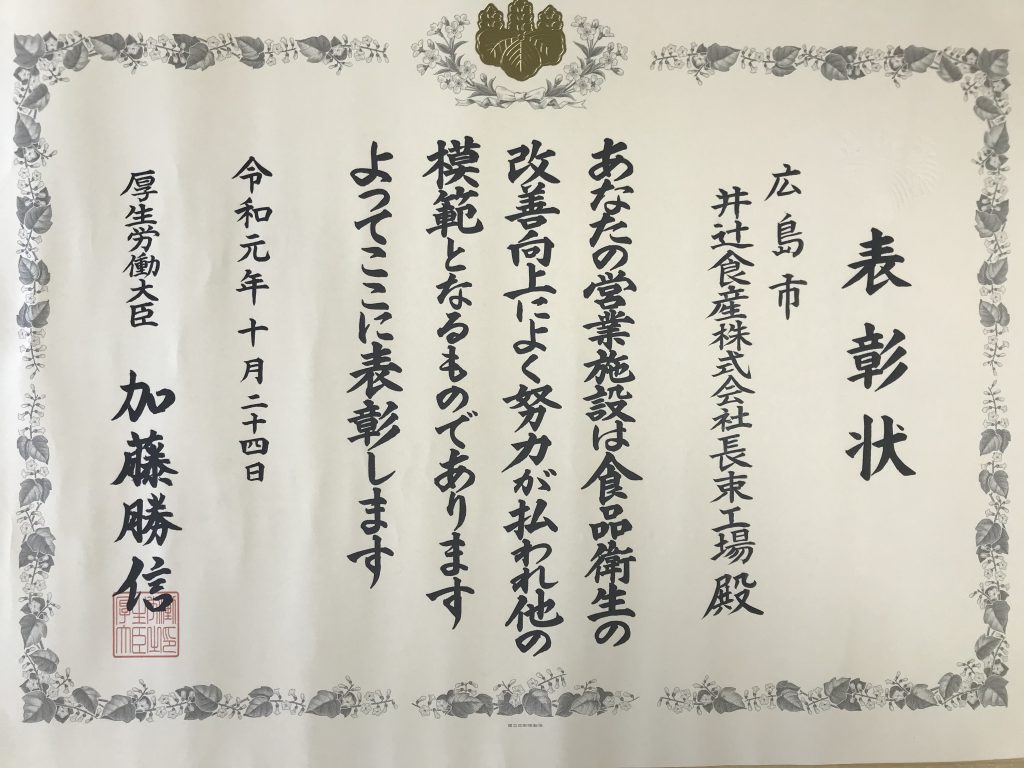 表彰状
広島市
井辻食産株式会社長束工場殿
あなたの営業施設は食品衛生の
改善向上によく努力が払われ他の
模範となるものであります
よってここに表彰します
令和元年十月二十四日
厚生労働大臣 加藤勝信